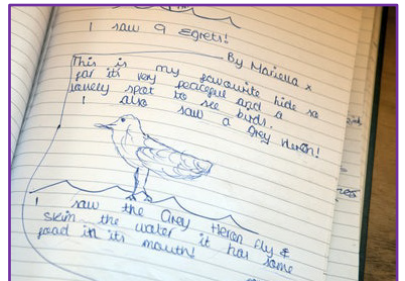 I saw 9 Egrets!
By Mariella x
This is my favourite hide so
far it's very peaceful and a
lovely spot to see birds.
I also saw a Grey Heron!
I saw the Grey Heron fly &
skim the water it has some
food in its mouth!